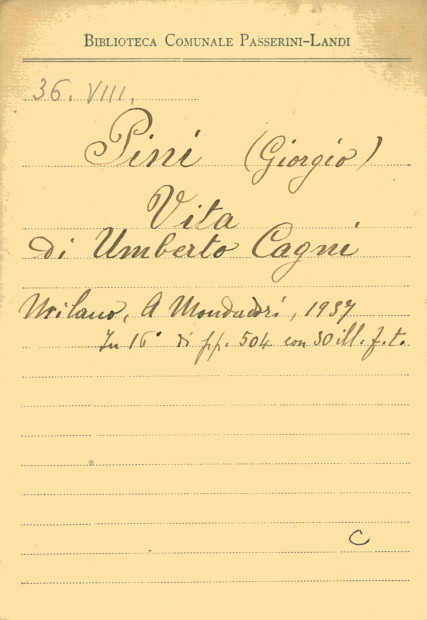 BIBLIOTECA COMUNALE PASSERINI-LANDI
36. VIII.
Pini (Giorgio)
Vita
di Umberto Cagni
Milano, A Mondadori, 1937
In 16° di pp. 504 con 30 ill. f. t.
C